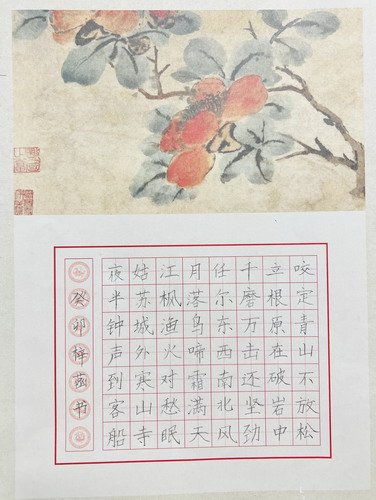 咬定青山不放松
立根原在破岩中
千磨万击还坚劲
任尔东西南北风
月落乌啼霜满天
江枫渔火对愁眠
姑苏城外寒山寺
夜半钟声到客船
癸卯梓菡书